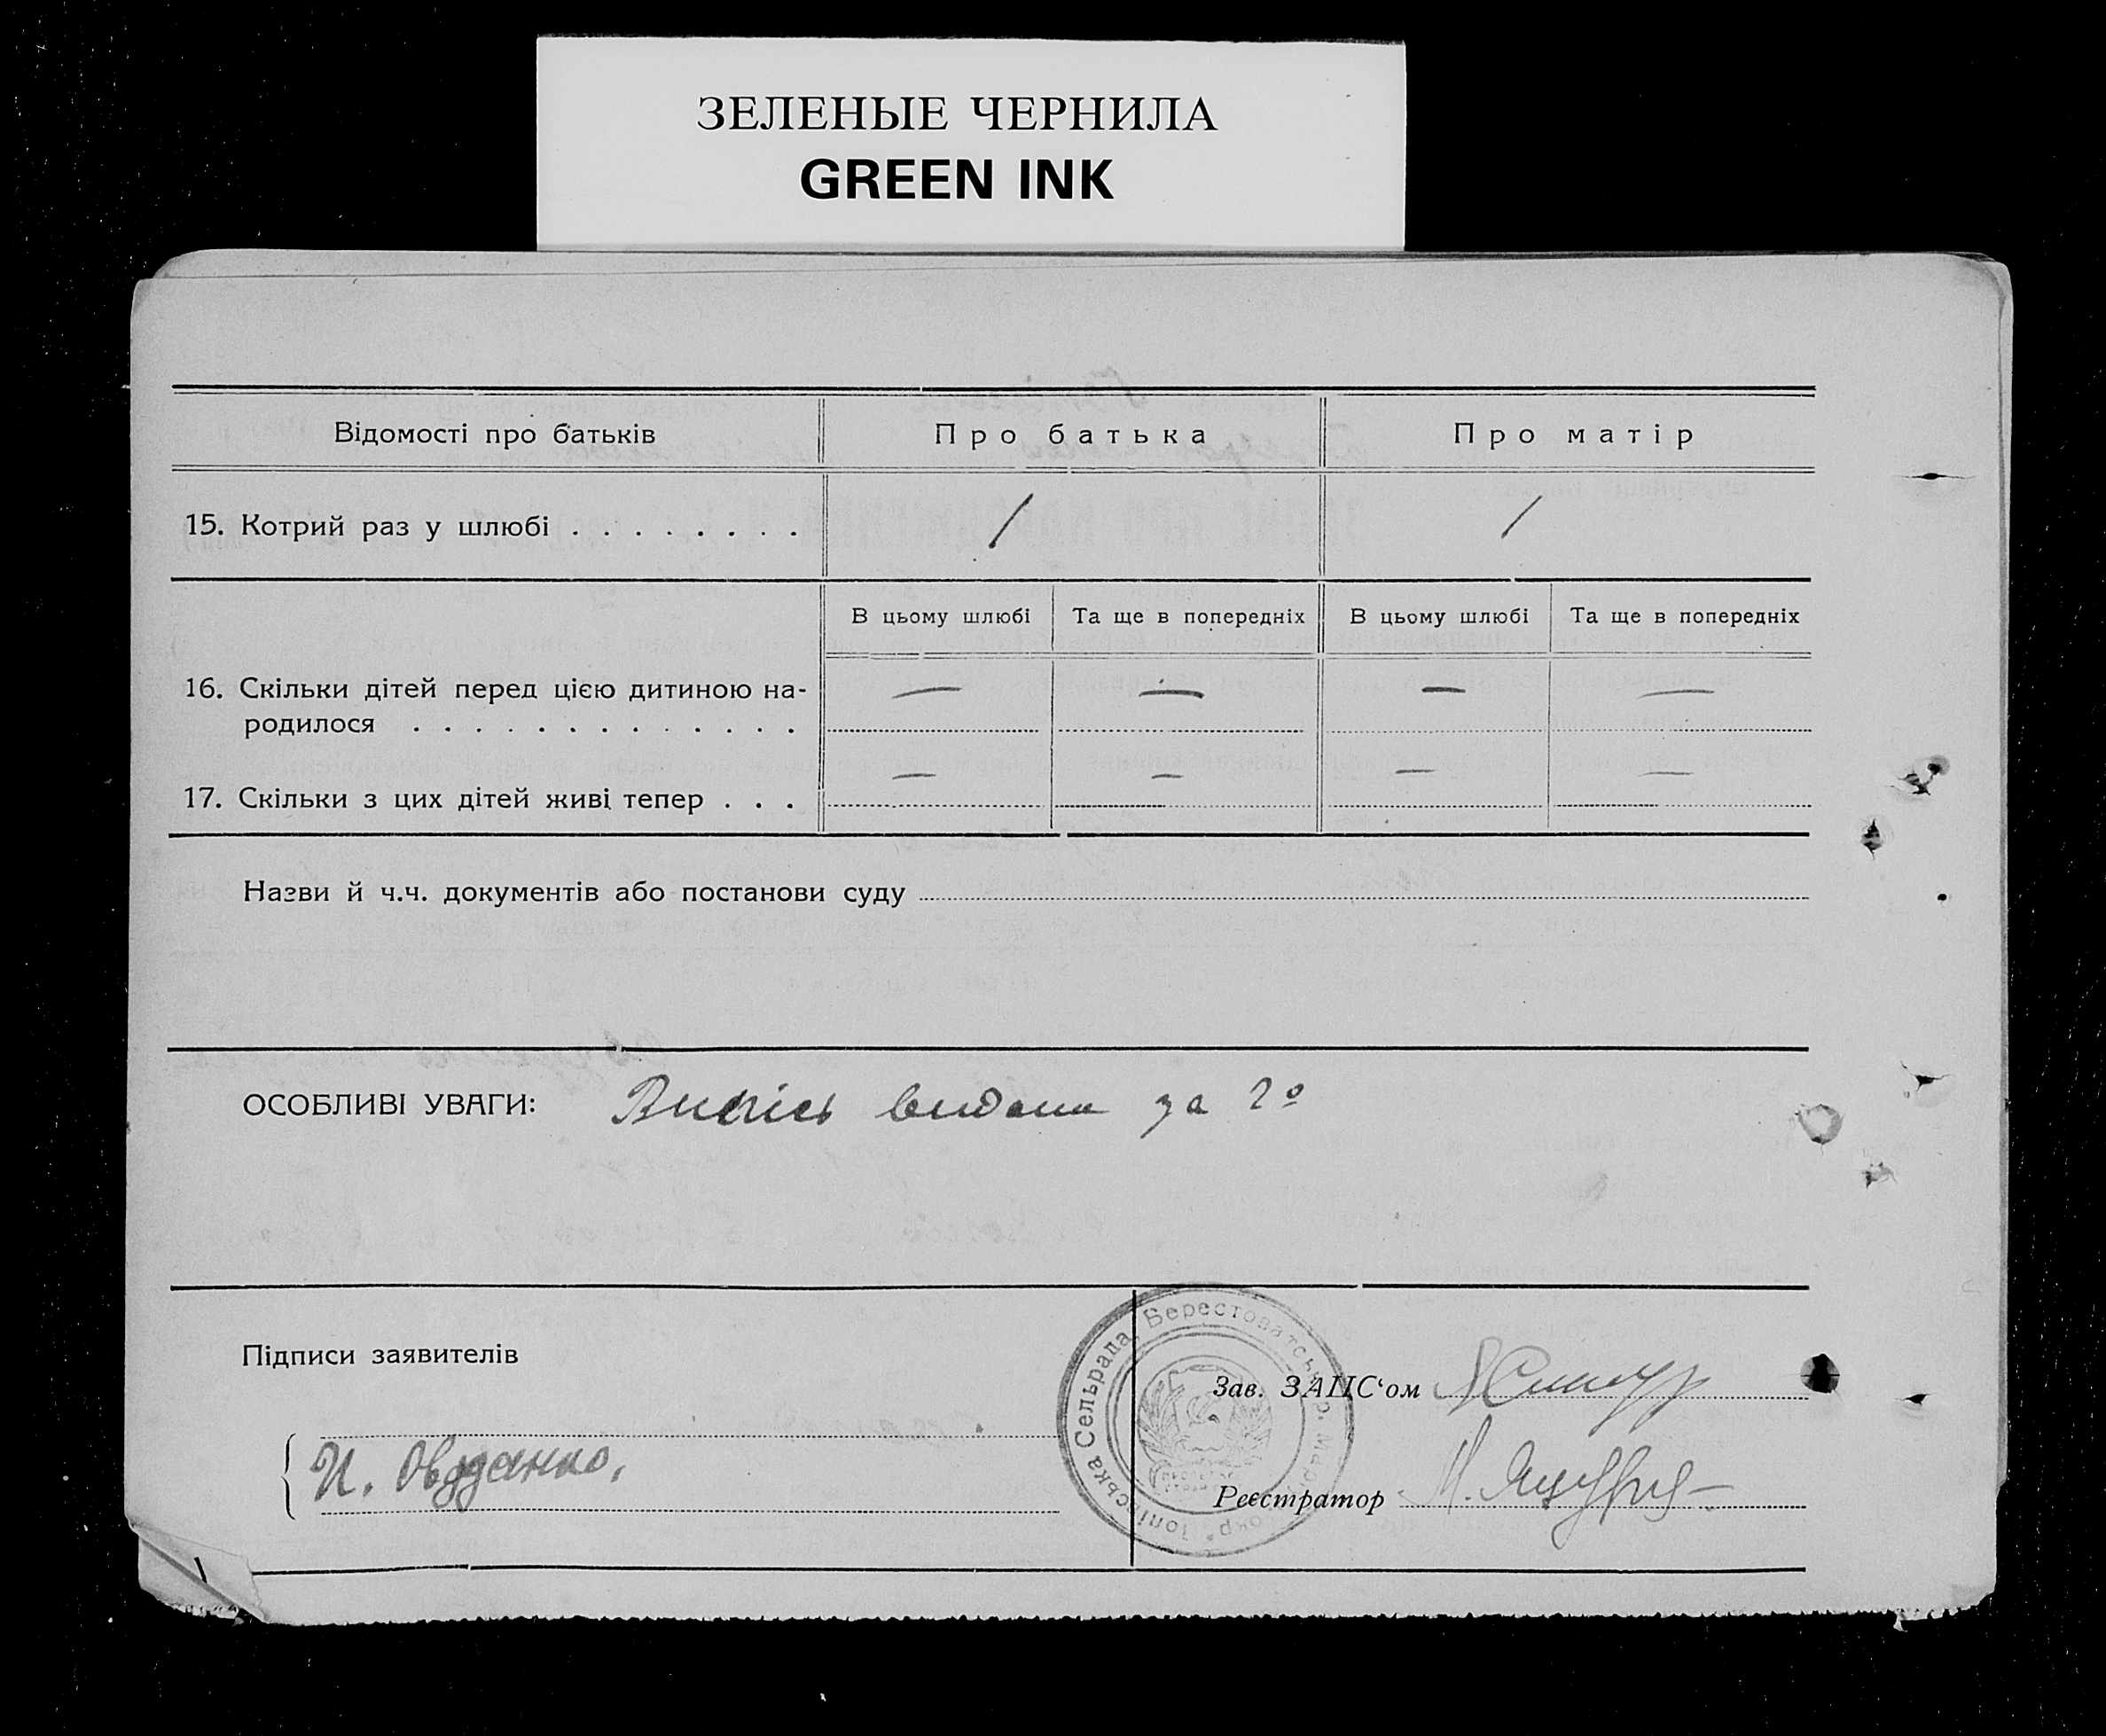 ЗЕЛЕНЫЕ ЧЕРНИЛА
GREEN INK
Відомості про батьків Про батька Про матір
15. Котрий раз у шлюбі . . . . . . . . 1 1
В цьому шлюбі Та ще в попередніх В цьому шлюбі Та ще в попередніх
16. Скільки дітей перед цією дитиною на- — — — —
родилося . . . . . . . . . . . . .
17. Скільки з цих дітей живі тепер . . . — — — —
Назви й ч.ч. документів або постанови суду
ОСОБЛИВІ УВАГИ: Випісь видана за 2º
Підписи заявителів
Сельрада Берестоватськ
Зав. ЗАЦС‘ом
И.
Реєстратор